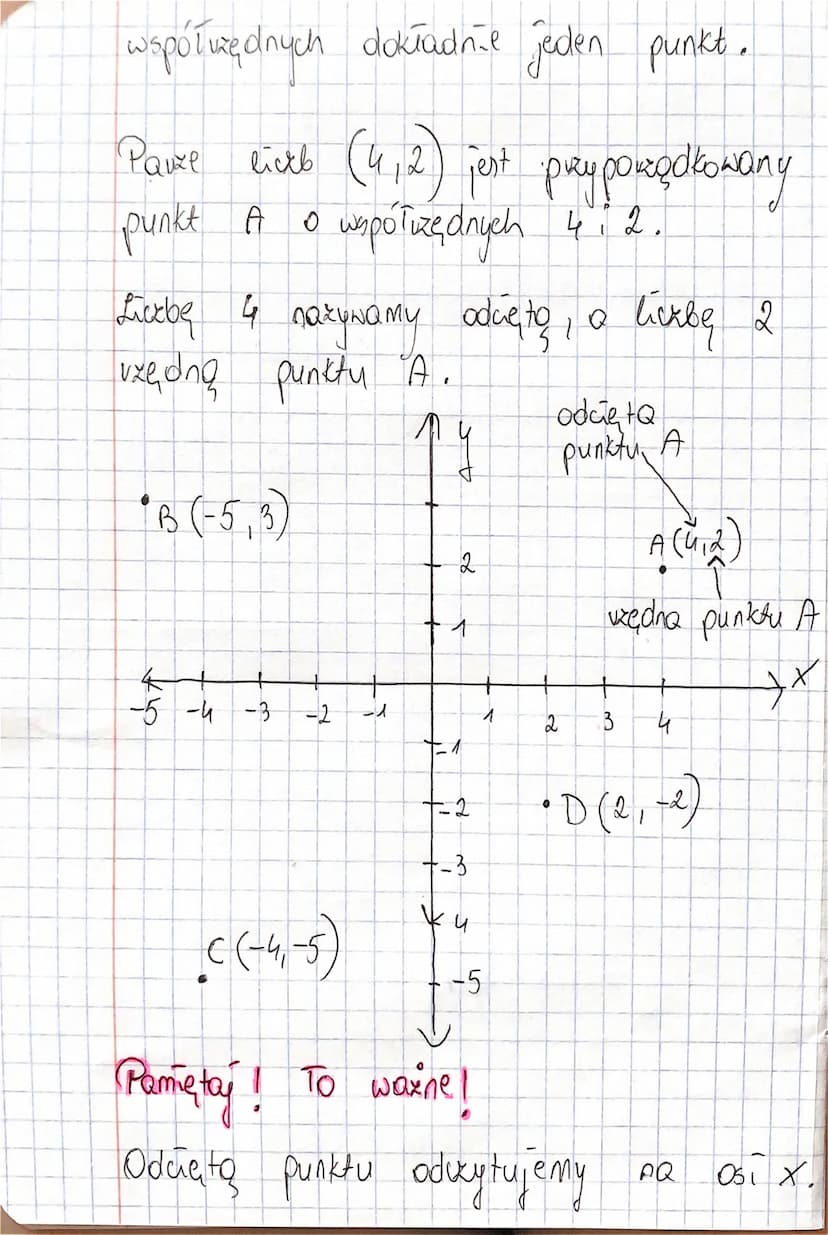 współrzędnych dokładnie jeden punkt.
Parze liczb (4,2) jest przyporządkowany
punkt A o współrzędnych 4 i 2.
Liczbę 4 nazywamy odciętą, a liczbę 2
rzędną punktu A.
y
odcięta
punktu A
B (-5, 3)
A (4,2)
2
1
rzędna punktu A
x
-5 -4 -3 -2 -1 1 2 3 4
-1
-2
D (2, -2)
-3
4
C (-4,-5)
-5
Pamiętaj! To ważne!
Odciętą punktu odczytujemy na osi x.